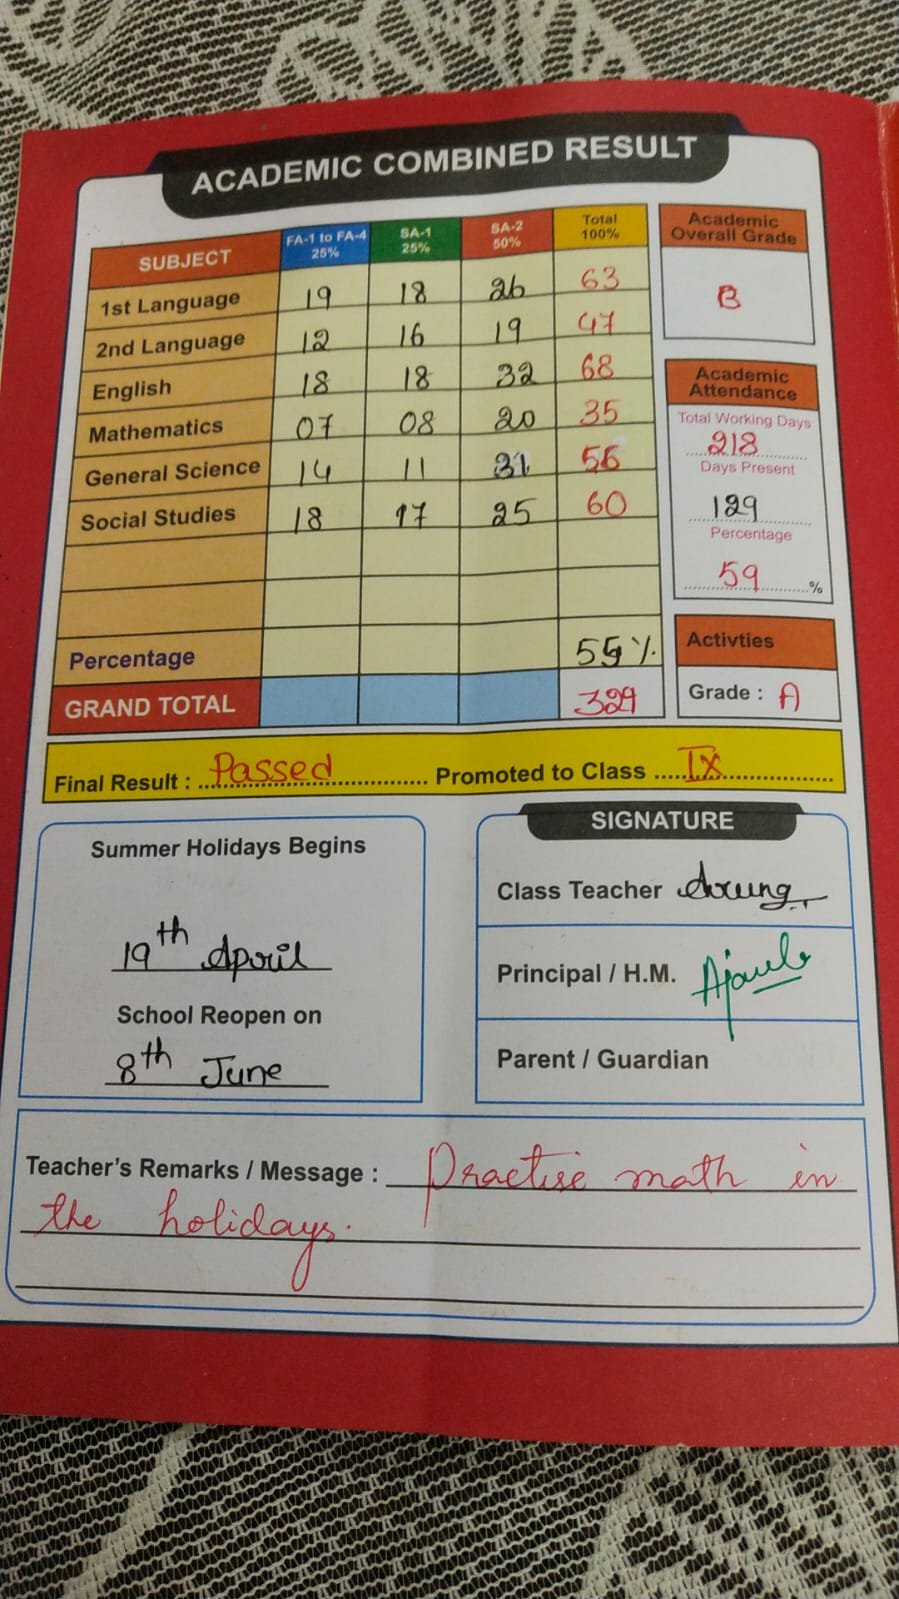 ACADEMIC COMBINED RESULT
SUBJECT FA-1 to FA-4 25% SA-1 25% SA-2 50% Total 100%
1st Language 19 18 26 63
2nd Language 12 16 19 47
English 18 18 32 68
Mathematics 07 08 20 35
General Science 14 11 31 56
Social Studies 18 17 25 60
Percentage 55%
GRAND TOTAL 329
Academic
Overall Grade
B
Academic
Attendance
Total Working Days
218
Days Present
129
Percentage
59 %
Activties
Grade : A
Final Result : Passed Promoted to Class IX
Summer Holidays Begins
19th April
School Reopen on
8th June
SIGNATURE
Class Teacher
Principal / H.M.
Parent / Guardian
Teacher's Remarks / Message : Practise math in
the holidays.